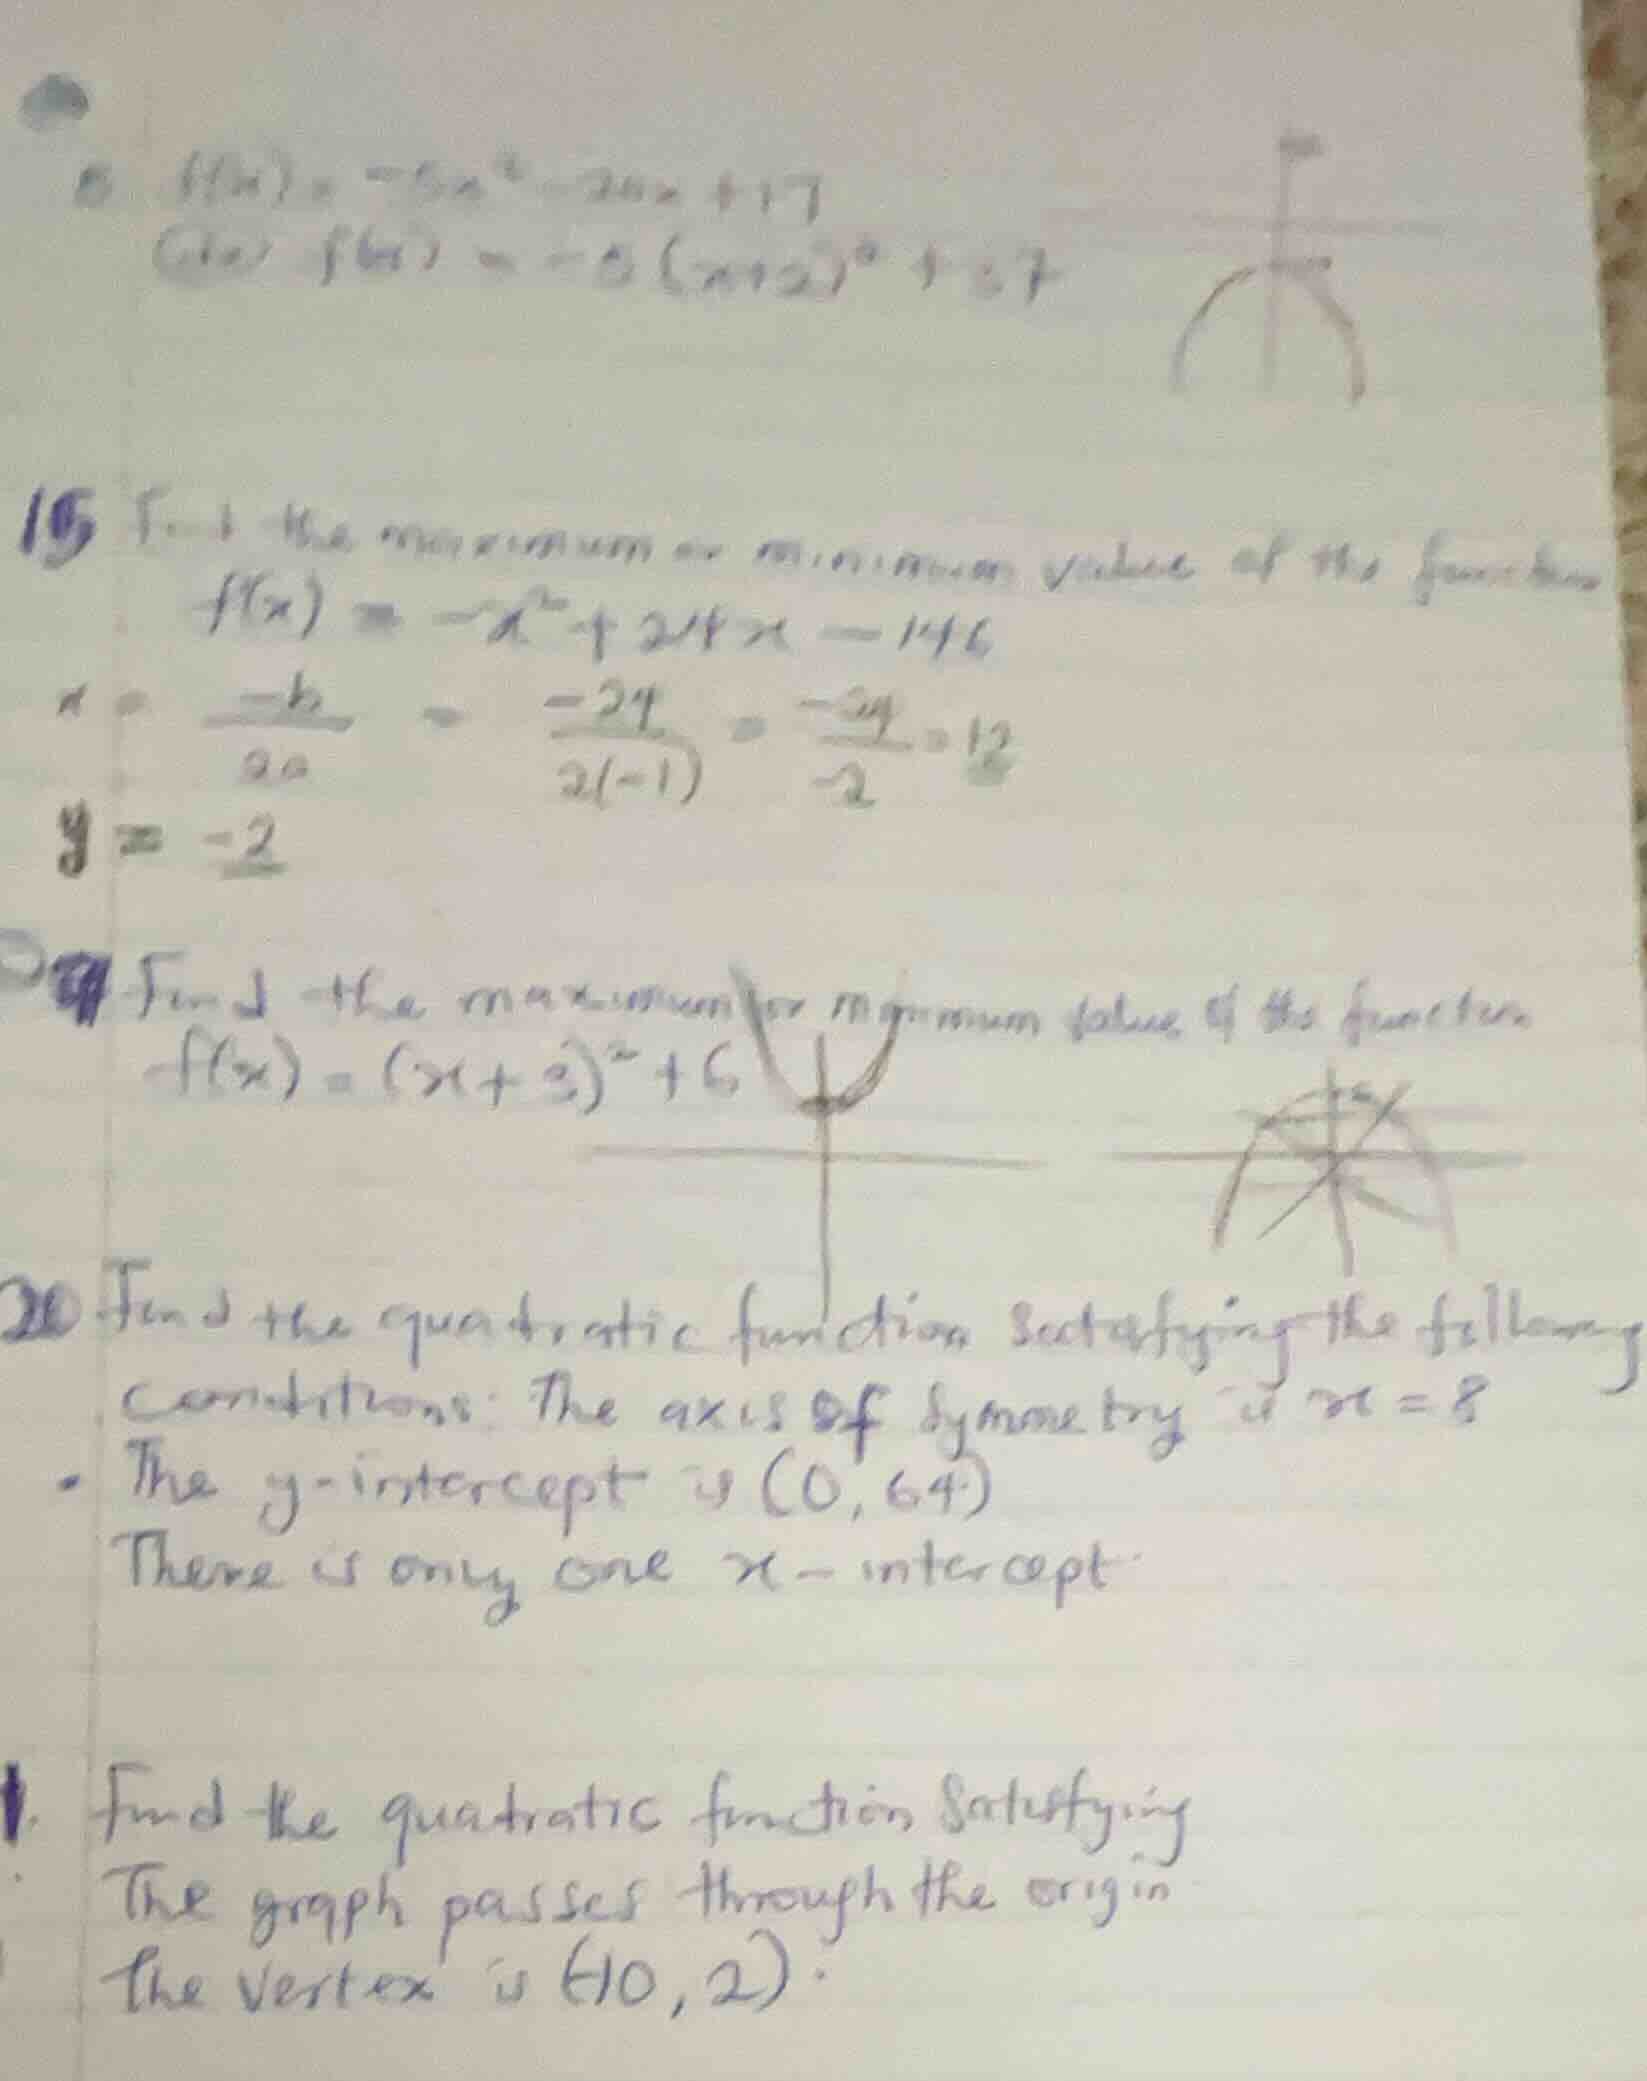 f(x) = -5x² - 20x + 17
f(x) = -5(x+2)² + 37
15 Find the maximum or minimum value of the function
f(x) = -x² + 24x - 146
x = -b/2a = -24/2(-1) = -24/-2 = 12
y = -2
Find the maximum or minimum value of the function
f(x) = (x+3)² + 6
20 Find the quadratic function satisfying the following
conditions: The axis of symmetry is x = 8
• The y-intercept is (0, 64)
There is only one x-intercept
1. Find the quadratic function satisfying
The graph passes through the origin
The vertex is (-10, 2).